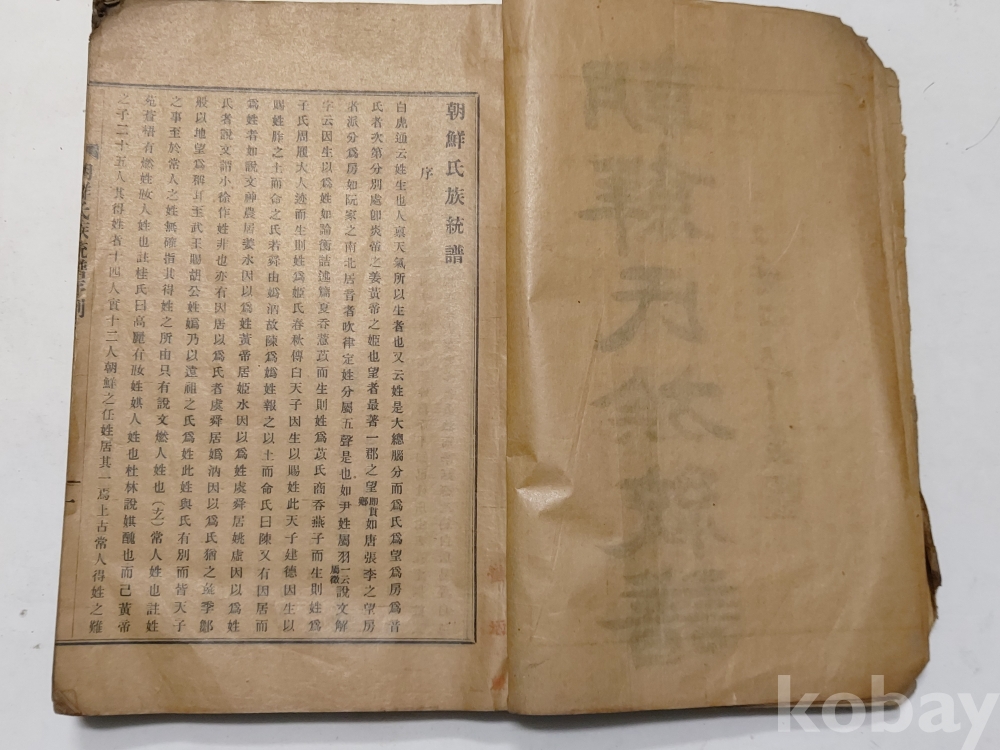 朝鮮氏族統譜
朝鮮氏族統譜
序
白虎通云姓生也人稟天氣所以生者也又云姓是大總腦分而爲氏爲望爲房爲音
氏者次第分別處卽炎帝之姜黃帝之姬也望者最著一郡之望卽貫鄕如唐張李之望房
者派分爲房如阮家之南北居音者吹律定姓分屬五聲是也如尹姓屬羽一云屬徵說文解
字云因生以爲姓如論衡詰述篇夏吞薏苡而生則姓爲苡氏商吞燕子而生則姓爲
子氏周履大人迹而生則姓爲姬氏春秋傳曰天子因生以賜姓此天子建德因生以
賜姓胙之土而命之氏若舜由嬀汭故陳爲嬀姓報之以土而命氏曰陳又有因居而
爲姓者如說文神農居姜水因以爲姓黃帝居姬水因以爲姓虞舜居姚虛因以爲姓
氏者說文謂小徐作姓非也亦有因居以爲氏者虞舜居嬀汭因以爲氏猶之季
般以地望爲稱耳至武王賜胡公姓嬀乃以遠祖之氏爲姓此姓與氏有別而皆天子
之事至於常人之姓無確指其得姓之所由只有說文燃人姓也常人姓也註姓
苑蒼梧有燃姓妝人姓也註桂氏曰高麗有妝姓娸人姓也杜林說娸醜也而己黃帝
之子二十五人其得姓者十四人實十二人朝鮮之任姓居其一焉上古常人得姓之難
朝鮮氏族統譜序
一
kobay